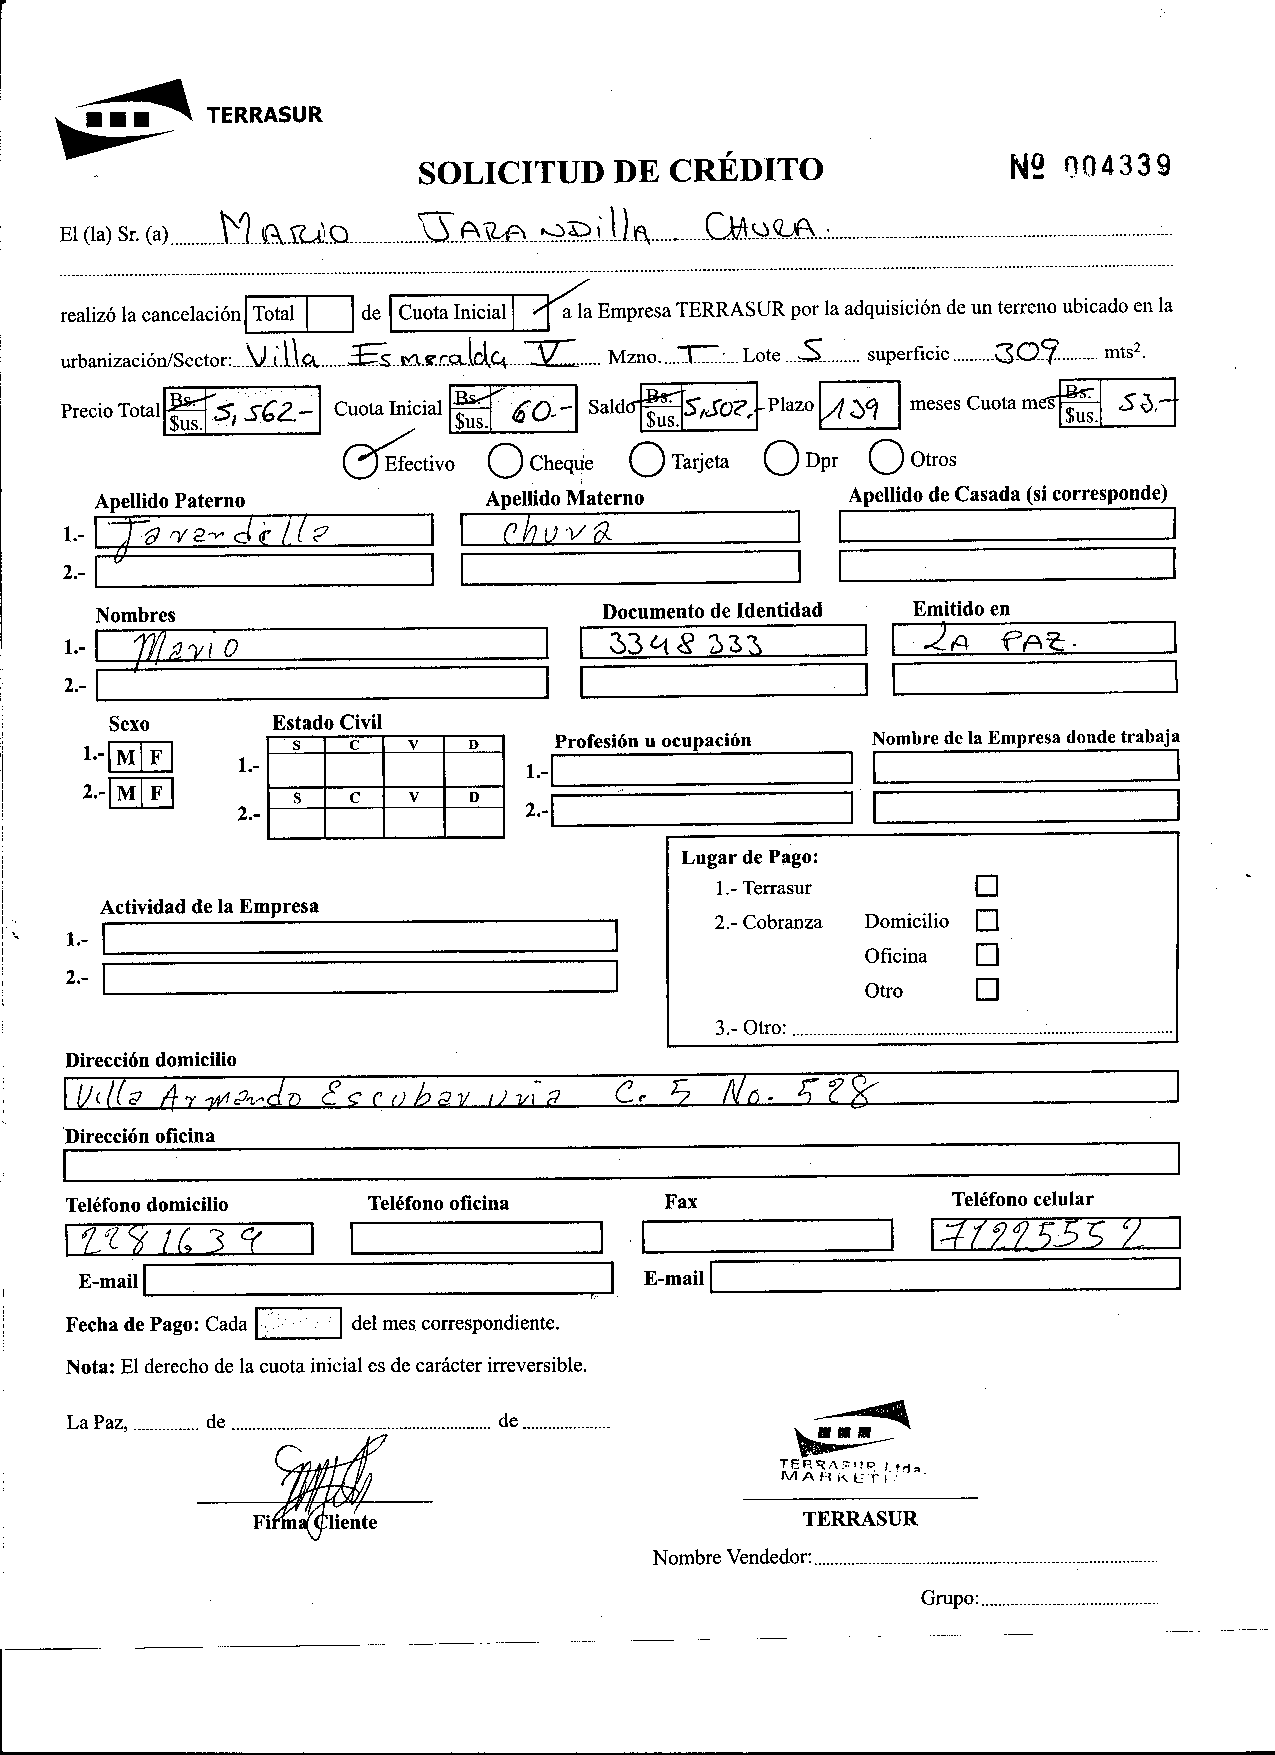 TERRASUR
SOLICITUD DE CRÉDITO Nº 004339
El (la) Sr. (a) MARIO JARANDillA CHURA.
realizó la cancelación Total de Cuota Inicial a la Empresa TERRASUR por la adquisición de un terreno ubicado en la
urbanización/Sector: Villa Esmeralda V Mzno. T Lote 5 superficie 309 mts².
Precio Total Bs. $us. 5,562.- Cuota Inicial Bs. $us. 60.- Saldo Bs. $us. 5,502.- Plazo 139 meses Cuota mes Bs. $us. 53.-
Efectivo Cheque Tarjeta Dpr Otros
Apellido Paterno Apellido Materno Apellido de Casada (si corresponde)
1.- Jarandilla Chura
2.-
Nombres Documento de Identidad Emitido en
1.- Mario 3348333 LA PAZ.
2.-
Sexo Estado Civil
S C V D Profesión u ocupación Nombre de la Empresa donde trabaja
1.- M F 1.- 1.-
2.- M F S C V D
2.- 2.-
Lugar de Pago:
1.- Terrasur
Actividad de la Empresa
2.- Cobranza Domicilio
1.-
Oficina
2.-
Otro
3.- Otro:
Dirección domicilio
Villa Armando Escobar Uria C. 5 No. 528
Dirección oficina
Teléfono domicilio Teléfono oficina Fax Teléfono celular
2281639 71995552
E-mail E-mail
Fecha de Pago: Cada del mes correspondiente.
Nota: El derecho de la cuota inicial es de carácter irreversible.
La Paz, de de
TERRASUR Ltda.
MARKETI
Firma Cliente TERRASUR
Nombre Vendedor:
Grupo: